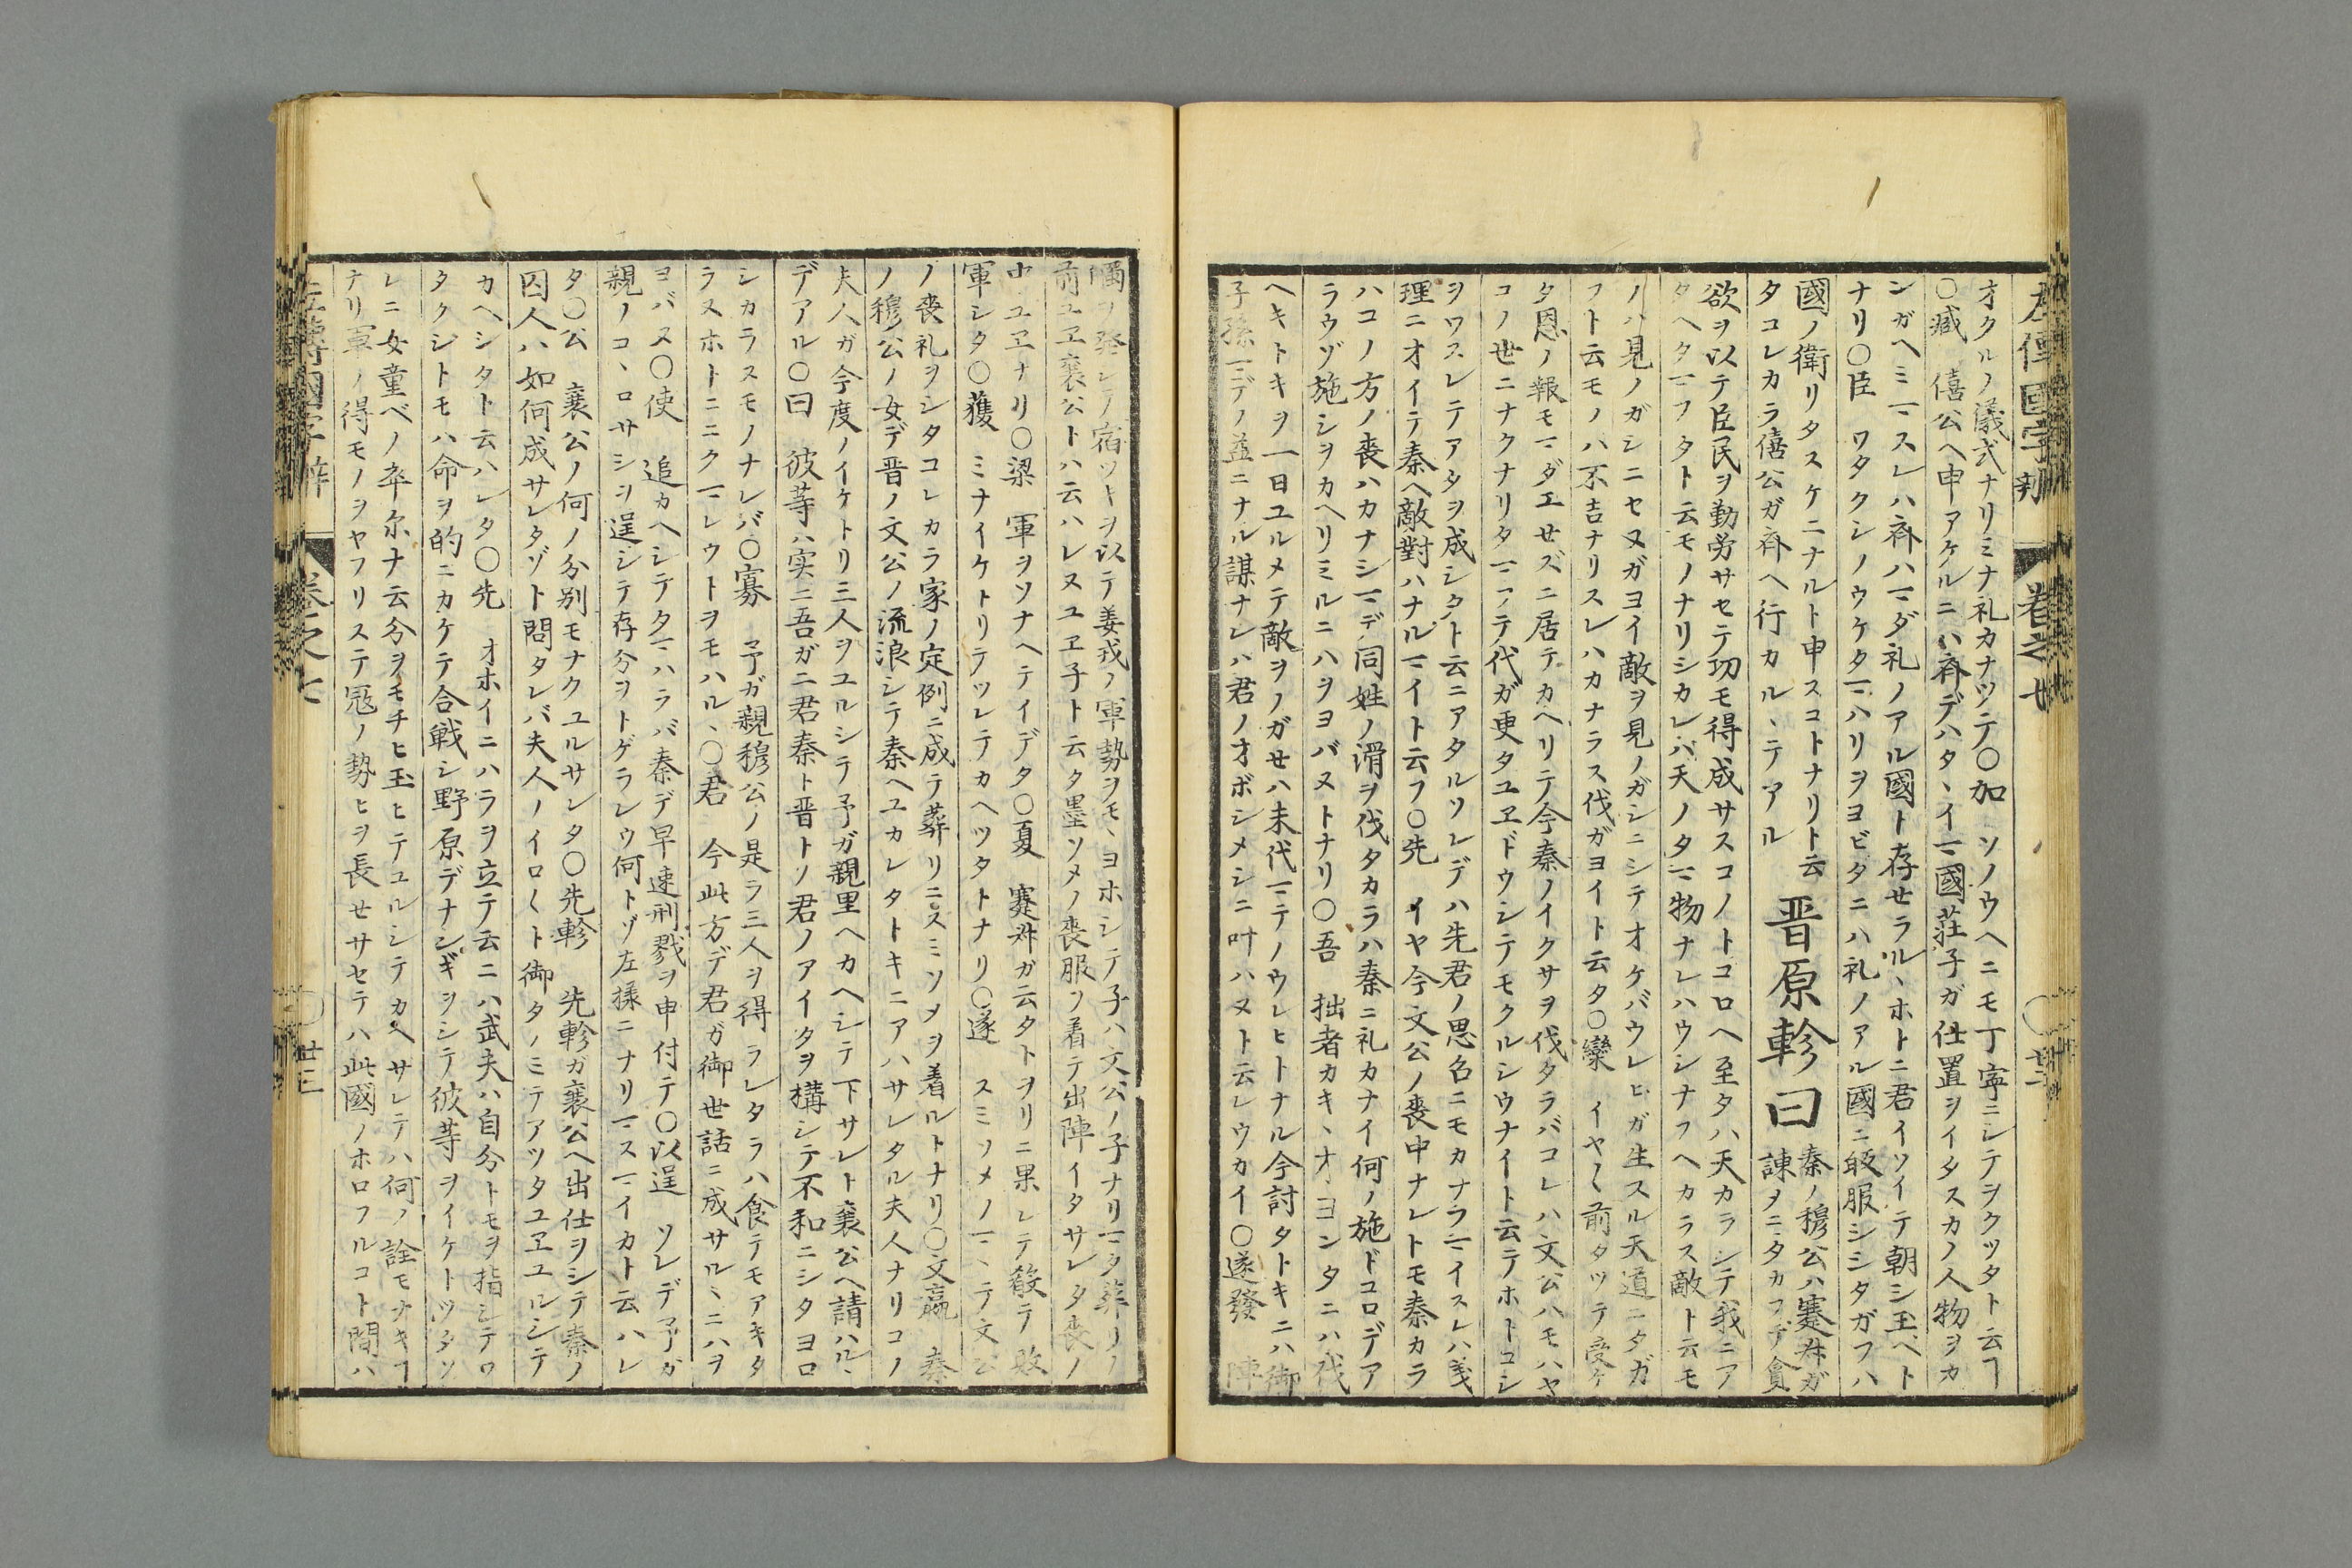 左傳國字辯 卷之七 〇廿二
オクルノ儀式ナリミナ礼カナツテ〇加 ソノウヘニモ丁寧ニシテヲクツタト云ヿ
〇臧 僖公ヘ申アケルニハ齊デハタヽイマ國莊子ガ仕置ヲイタスカノ人物ヲカ
ンガヘミマスレハ齊ハマダ礼ノアル國ト存セラルヽホトニ君イソイテ朝シ玉ヘト
ナリ〇臣 ワタクシノウケタマハリヲヨビタニハ礼ノアル國ニ服シシタガフハ
國ノ衛リタスケニナルト申スコトナリト云
タコレカラ僖公ガ齊ヘ行カルヽテアル
晋原軫曰
秦ノ穆公ハ蹇叔ガ
諌ヲニタカフデ貪
欲ヲ以テ臣民ヲ勤労サセテ功モ得成サスコノトコロヘ至タハ天カラシテ我ニア
タヘタマフタト云モノナリシカレバ天ノタマ物ナレハウシナフヘカラス敵ト云モ
ノハ見ノガシニセヌガヨイ敵ヲ見ノガシニシテオケバウレヒガ生スル天道ニタガ
フト云モノハ不吉ナリスレハカナラス伐ガヨイト云タ〇欒 イヤ〱前タツテ受ケ
タ恩ノ報モマダエセズニ居テカヘリテ今秦ノイクサヲ伐タラバコレハ文公ハモハヤ
コノ世ニナクナリタマフテ代ガ更タユヱドウシテモクルシウナイト云テホトコシ
ヲワスレテアタヲ成シタト云ニアタルソレデハ先君ノ思名ニモカナラマイスレハ義
理ニオイテ秦ヘ敵對ハナルマイト云フ〇先 イヤ今文公ノ喪中ナレトモ秦カラ
ハコノ方ノ喪ハカナシマデ同姓ノ滑ヲ伐タカラハ秦ニ礼カナイ何ノ施ドコロデア
ラウゾ施シヲカヘリミルニハヲヨバヌトナリ〇吾 拙者カキヽナヨンタニハ一代
ヘキトキヲ一日ユルメテ敵ヲノガせハ末代マテノウレヒトナル今討タトキニハ御
子孫マデノ益ニナル謀ナレハ君ノオボシメシニ叶ハヌト云レウカイ〇遂發 陣
觸ヲ發シノ宿ツキヲ以テ姜戎ノ軍勢ヲモヽヨホシテ子ハ文公ノ子ナリマタ葬リノ
前ユヱ襄公トハ云ハレヌユヱ子ト云タ墨ソメノ喪服ヲ着テ出陣イタサレタ喪ノ
中ユヱナリ〇梁 軍ヲソナヘテイデタ〇夏 蹇叔ガ云タトヲリニ果シテ殽テ敗
軍シタ〇獲 ミナイケトリテツレテカヘツタトナリ〇遂 スミソメノマヽテ文公
ノ喪礼ヲシタコレカラ家ノ定例ニ成テ葬リニスミソメヲ着ルトナリ〇文嬴 秦
ノ穆公ノ女デ晋ノ文公ノ流浪シテ秦ヘユカレタトキニアハサレタル夫人ナリコノ
夫人ガ今度ノイケトリ三人ヲユルシテ予ガ親里ヘカヘシテ下サレト襄公ヘ請ハルヽ
デアル〇曰 彼等ハ実ニ吾ガニ君秦ト晋トノ君ノアイタヲ構シテ不和ニシタヨロ
シカラスモノナレバ〇寡 予ガ親穆公ノ是ラ三人ヲ得ラレタラハ食テモアキタ
ラヌホトニニクマレウトヲモハルヽ〇君 今此方デ君ガ御世話ニ成サルヽニハヲ
ヨバス〇使 追カヘシテタマハラバ秦デ早速刑戮ヲ申付テ〇以逞 ソレデ予ガ
親ノコヽロサシヲ逞シテ存分ヲトゲラレウ何トゾ左樣ニナリマスマイカト云ハレ
タ〇公 襄公ノ何ノ分別モナクユルサレタ〇先軫 先軫ガ襄公ヘ出仕ヲシテ秦ノ
囚人ハ如何成サレタゾト問タレバ夫人ノイロ〱ト御タノミテアツタユヱユルシテ
カヘシタト云ハレタ〇先 オホイニハラヲ立テ云ニハ武夫ハ自分トモヲ指シテロ
タクシトモハ命ヲ的ニカケテ合戰シ野原デナンギヲシテ彼等ヲイケトツタソ
レニ女童ベノ卒尔ナ云分ヲモチヒ玉ヒテユルシテカヘサレテハ何ノ詮モナキヿ
ナリ軍ノ得モノヲヤフリステ冦ノ勢ヒヲ長せサセテハ此國ノホロフルコト間ハ
左傳國字辯 卷之七 〇廿三